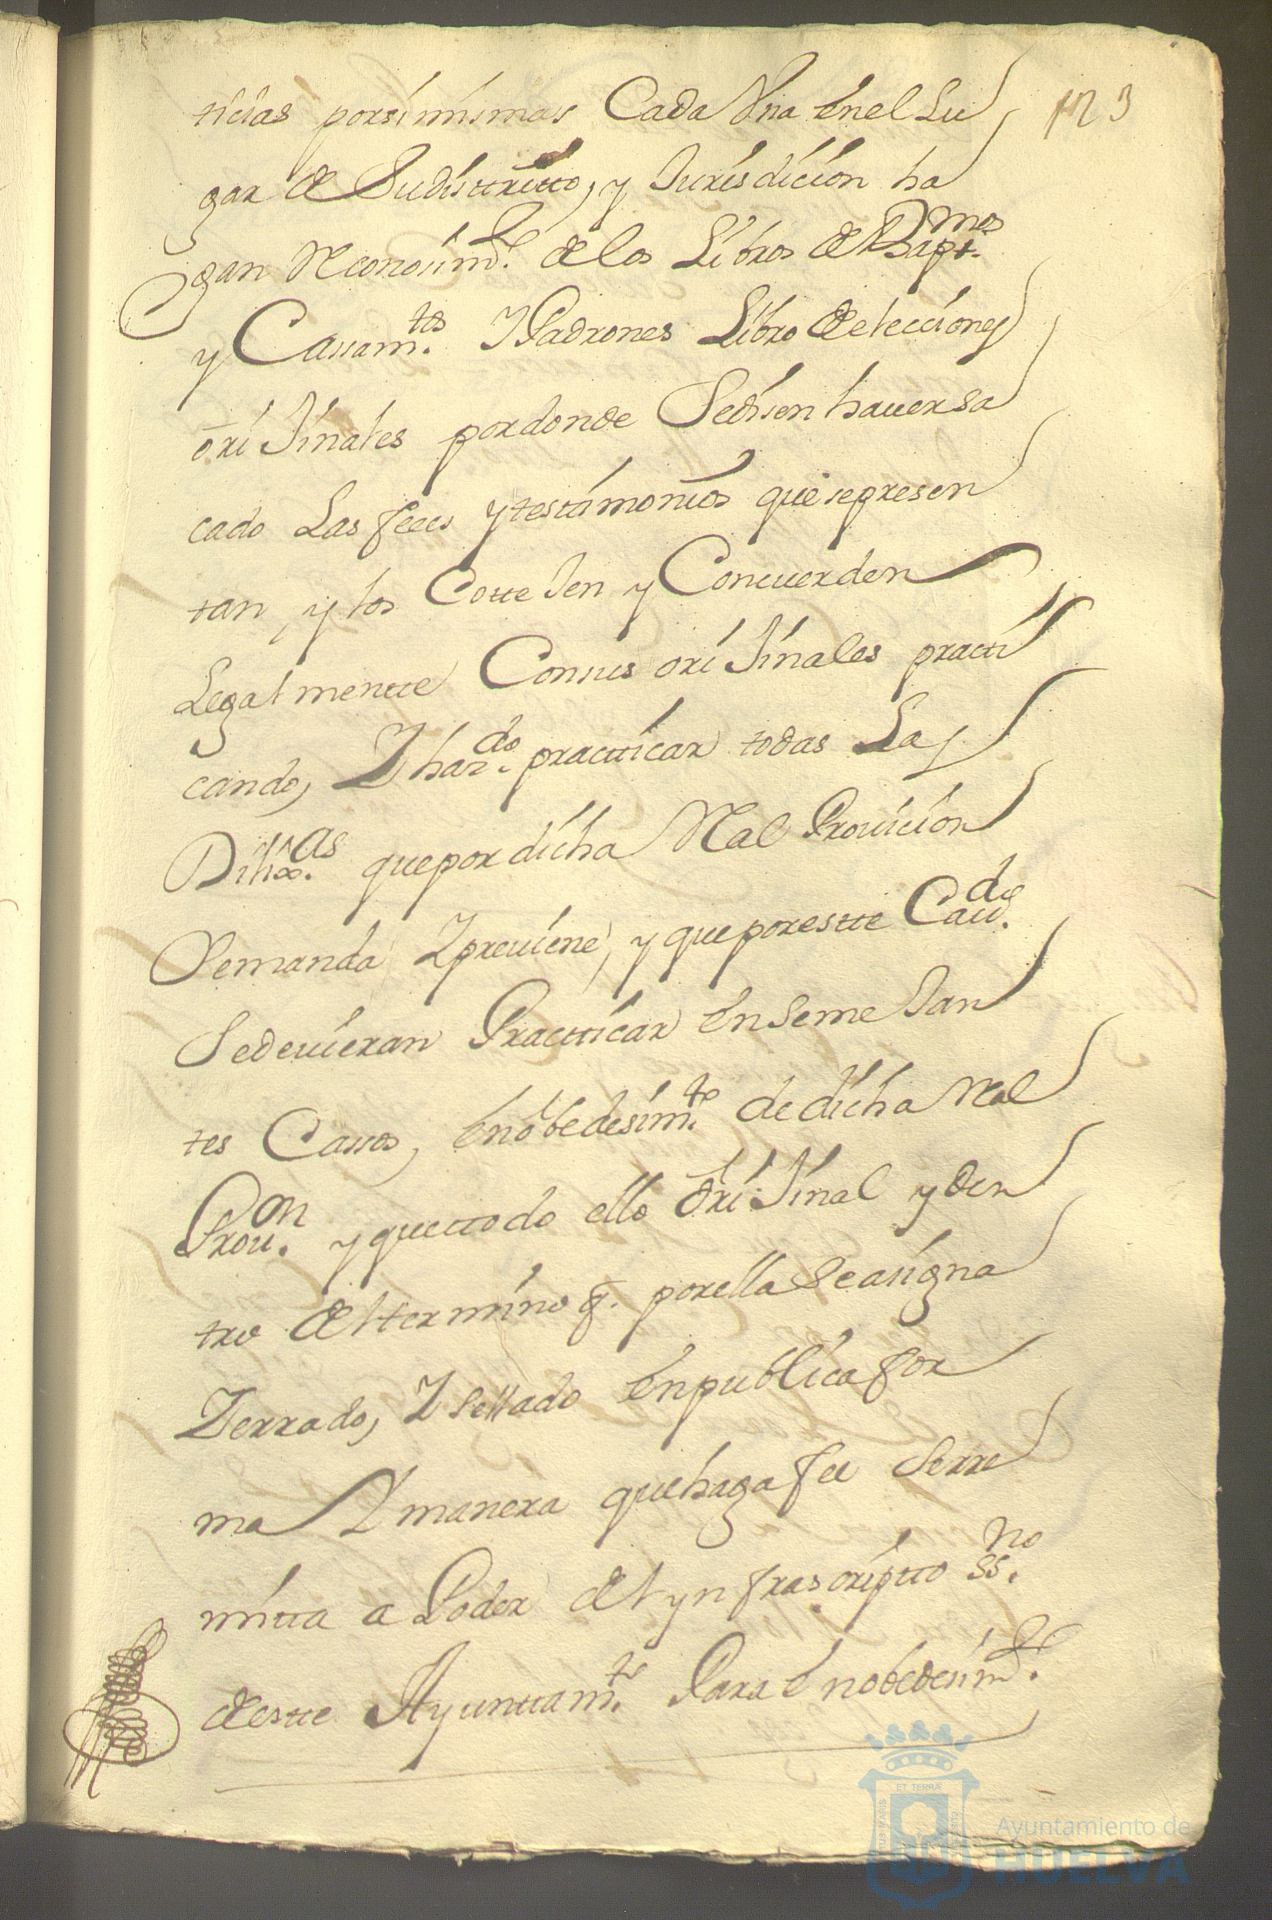 123
ticias porsimismas Cada Una en el Lu
gar de Sudisttritto, y Jurisdicion ha
gan Reconosim.to de los Libros de Bapt.mos
y Casam.tos Y Padrones Libro de elecciones
oriJinales pordonde Sedisen hauersa
cado Las fees ytestimonios que sepresen
tan, y los CotteJen y Concuerden
Legalmentte Consus oriJinales practi
cando, Y haz.do practticar todas Las
Dilix.as quepordicha Real Prouicion
Semanda Ypreuiene, y queporestte Cau.do
Sedeuieran Practticar enSemeJan
tes Casos, enobedesim.to de dicha Real
Prou.on y quettodo ello oriJinal y den
tro del termino q. porella Seasigna
Zerrado, Y Sellado enpublica for
ma Y manera quehaga fee Serre
mitta a Poder del ynfrascriptto ss.no
destte Ayunttam.to Para enobedesim.to
ET TERRÆ
Ayuntamiento de
HUELVA